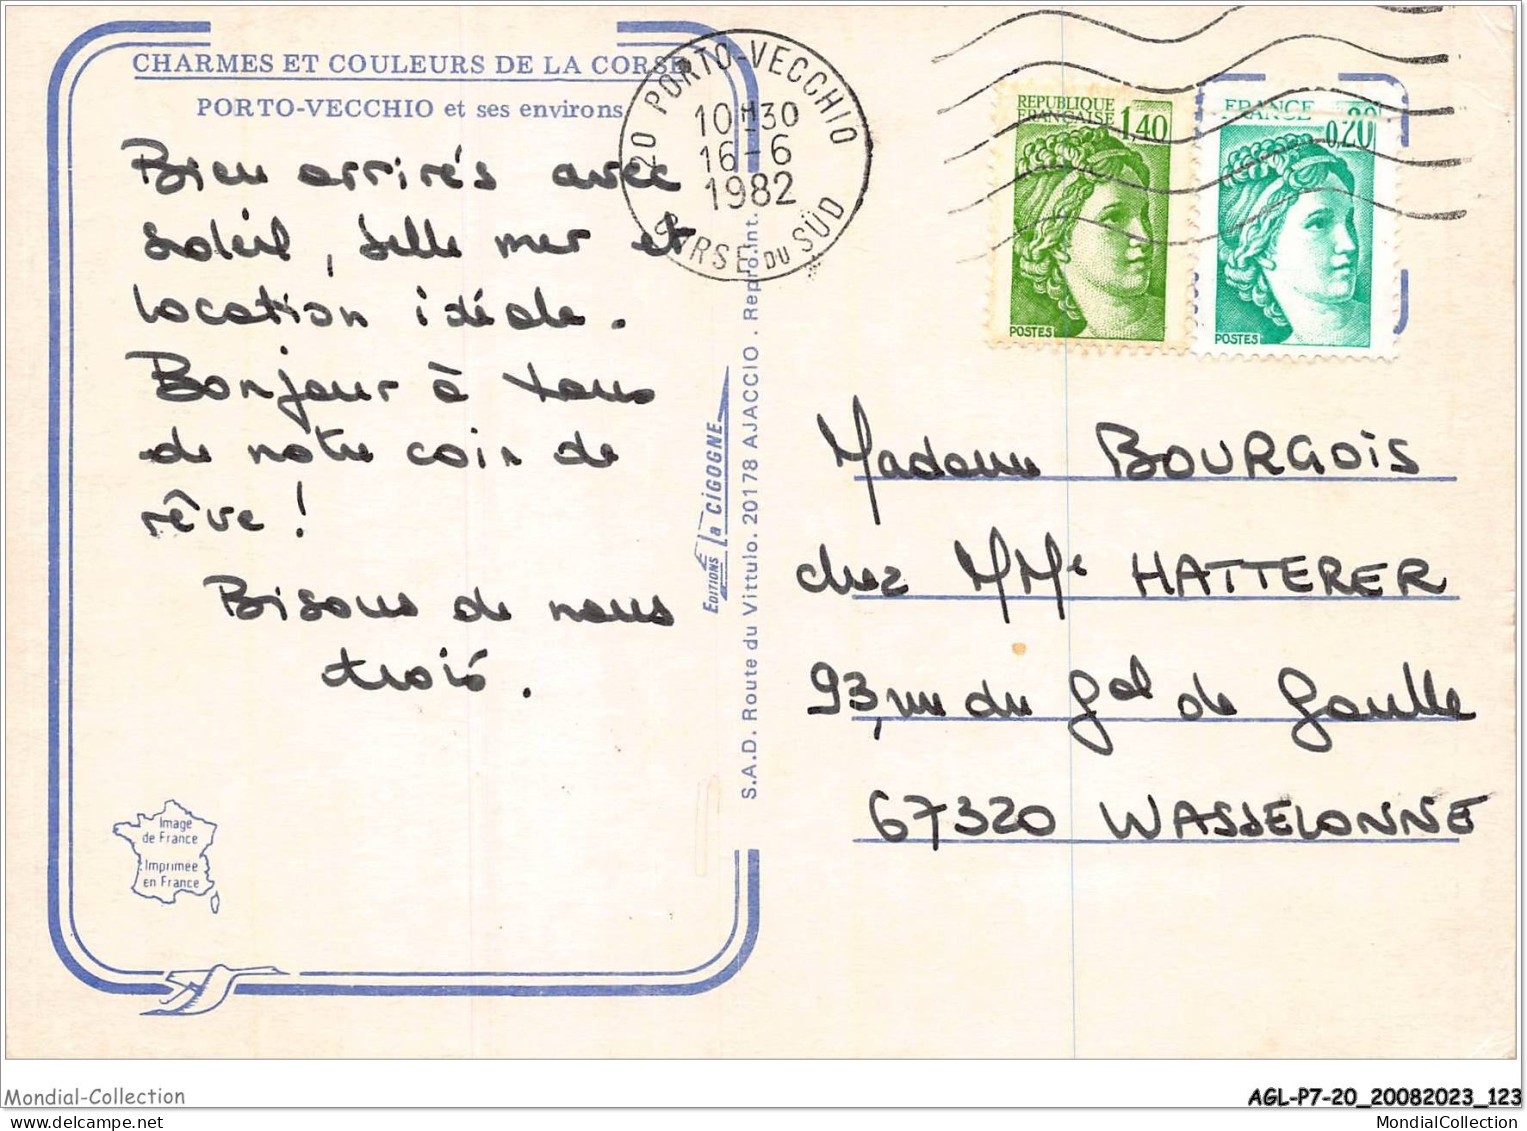 CHARMES ET COULEURS DE LA CORSE
PORTO-VECCHIO et ses environs
Bien arrivés avec
soleil, belle mer et
location idéale.
Bonjour à tous
de notre coin de
rêve !
Bisous de nous
trois.
Image
de France
Imprimée
en France
EDITIONS La CIGOGNE
S.A.D. Route du Vittulo. 20178 AJACCIO . Repro. Int.
20 PORTO-VECCHIO
10H30
16-6
1982
CORSE DU SUD
REPUBLIQUE
FRANÇAISE 1,40
POSTES
FRANCE
0,20
POSTES
Madame BOURGOIS
chez MMe HATTERER
93, rue du Gal de Gaulle
67320 WASSELONNE
Mondial-Collection
AGL-P7-20_20082023_123
MondialCollection